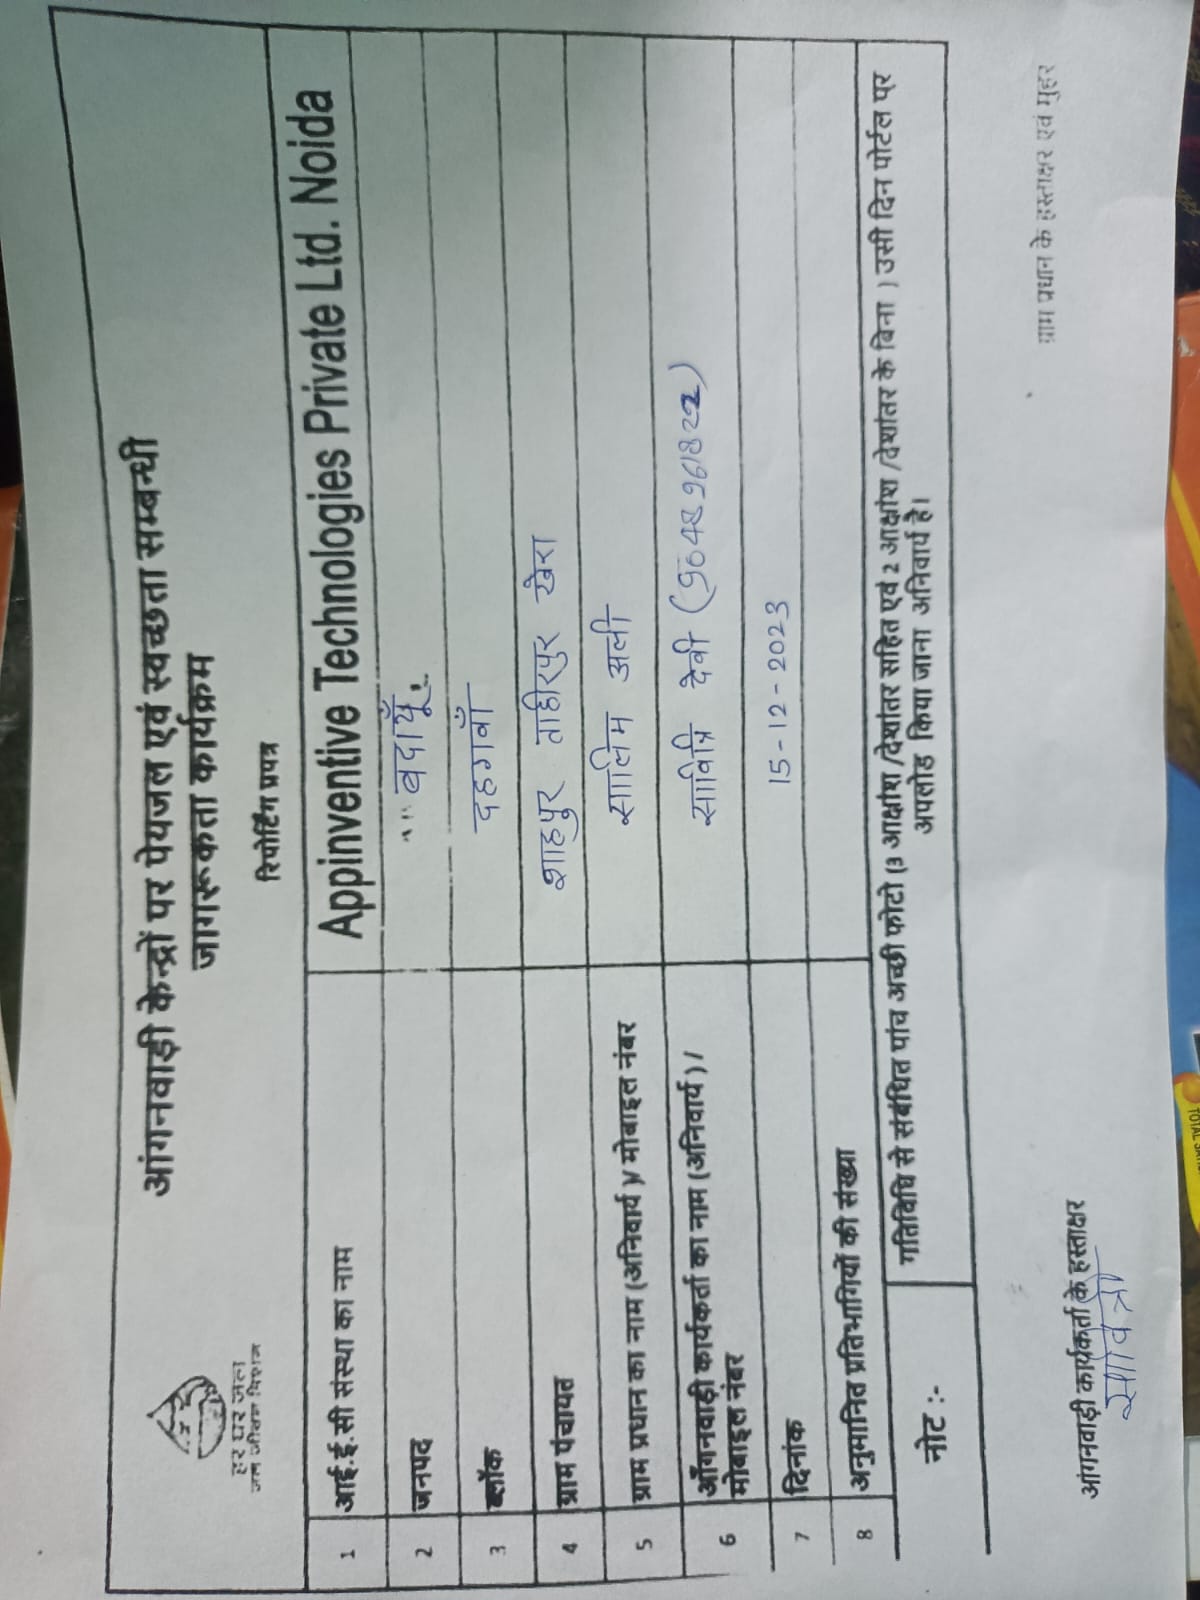 हर घर जल
जल जीवन मिशन
आंगनवाड़ी केन्द्रों पर पेयजल एवं स्वच्छता सम्बन्धी
जागरूकता कार्यक्रम
रिपोर्टिंग प्रपत्र
1 आई.ई.सी संस्था का नाम Appinventive Technologies Private Ltd. Noida
2 जनपद बदायूँ
3 ब्लॉक दहगवाँ
4 ग्राम पंचायत शाहपुर ताहीरपुर खेरा
5 ग्राम प्रधान का नाम (अनिवार्य )/ मोबाइल नंबर सालिम अली
6 आँगनवाड़ी कार्यकर्ता का नाम (अनिवार्य ) / सावित्रि देवी
मोबाइल नंबर
7 दिनांक 15-12-2023
8 अनुमानित प्रतिभागियों की संख्या
नोट :- गतिविधि से संबंधित पांच अच्छी फोटो (3 आक्षांश /देशांतर सहित एवं 2 आक्षांश /देशांतर के बिना ) उसी दिन पोर्टल पर
अपलोड किया जाना अनिवार्य है।
आंगनवाड़ी कार्यकर्ता के हस्ताक्षर ग्राम प्रधान के हस्ताक्षर एवं मुहर
सावित्री